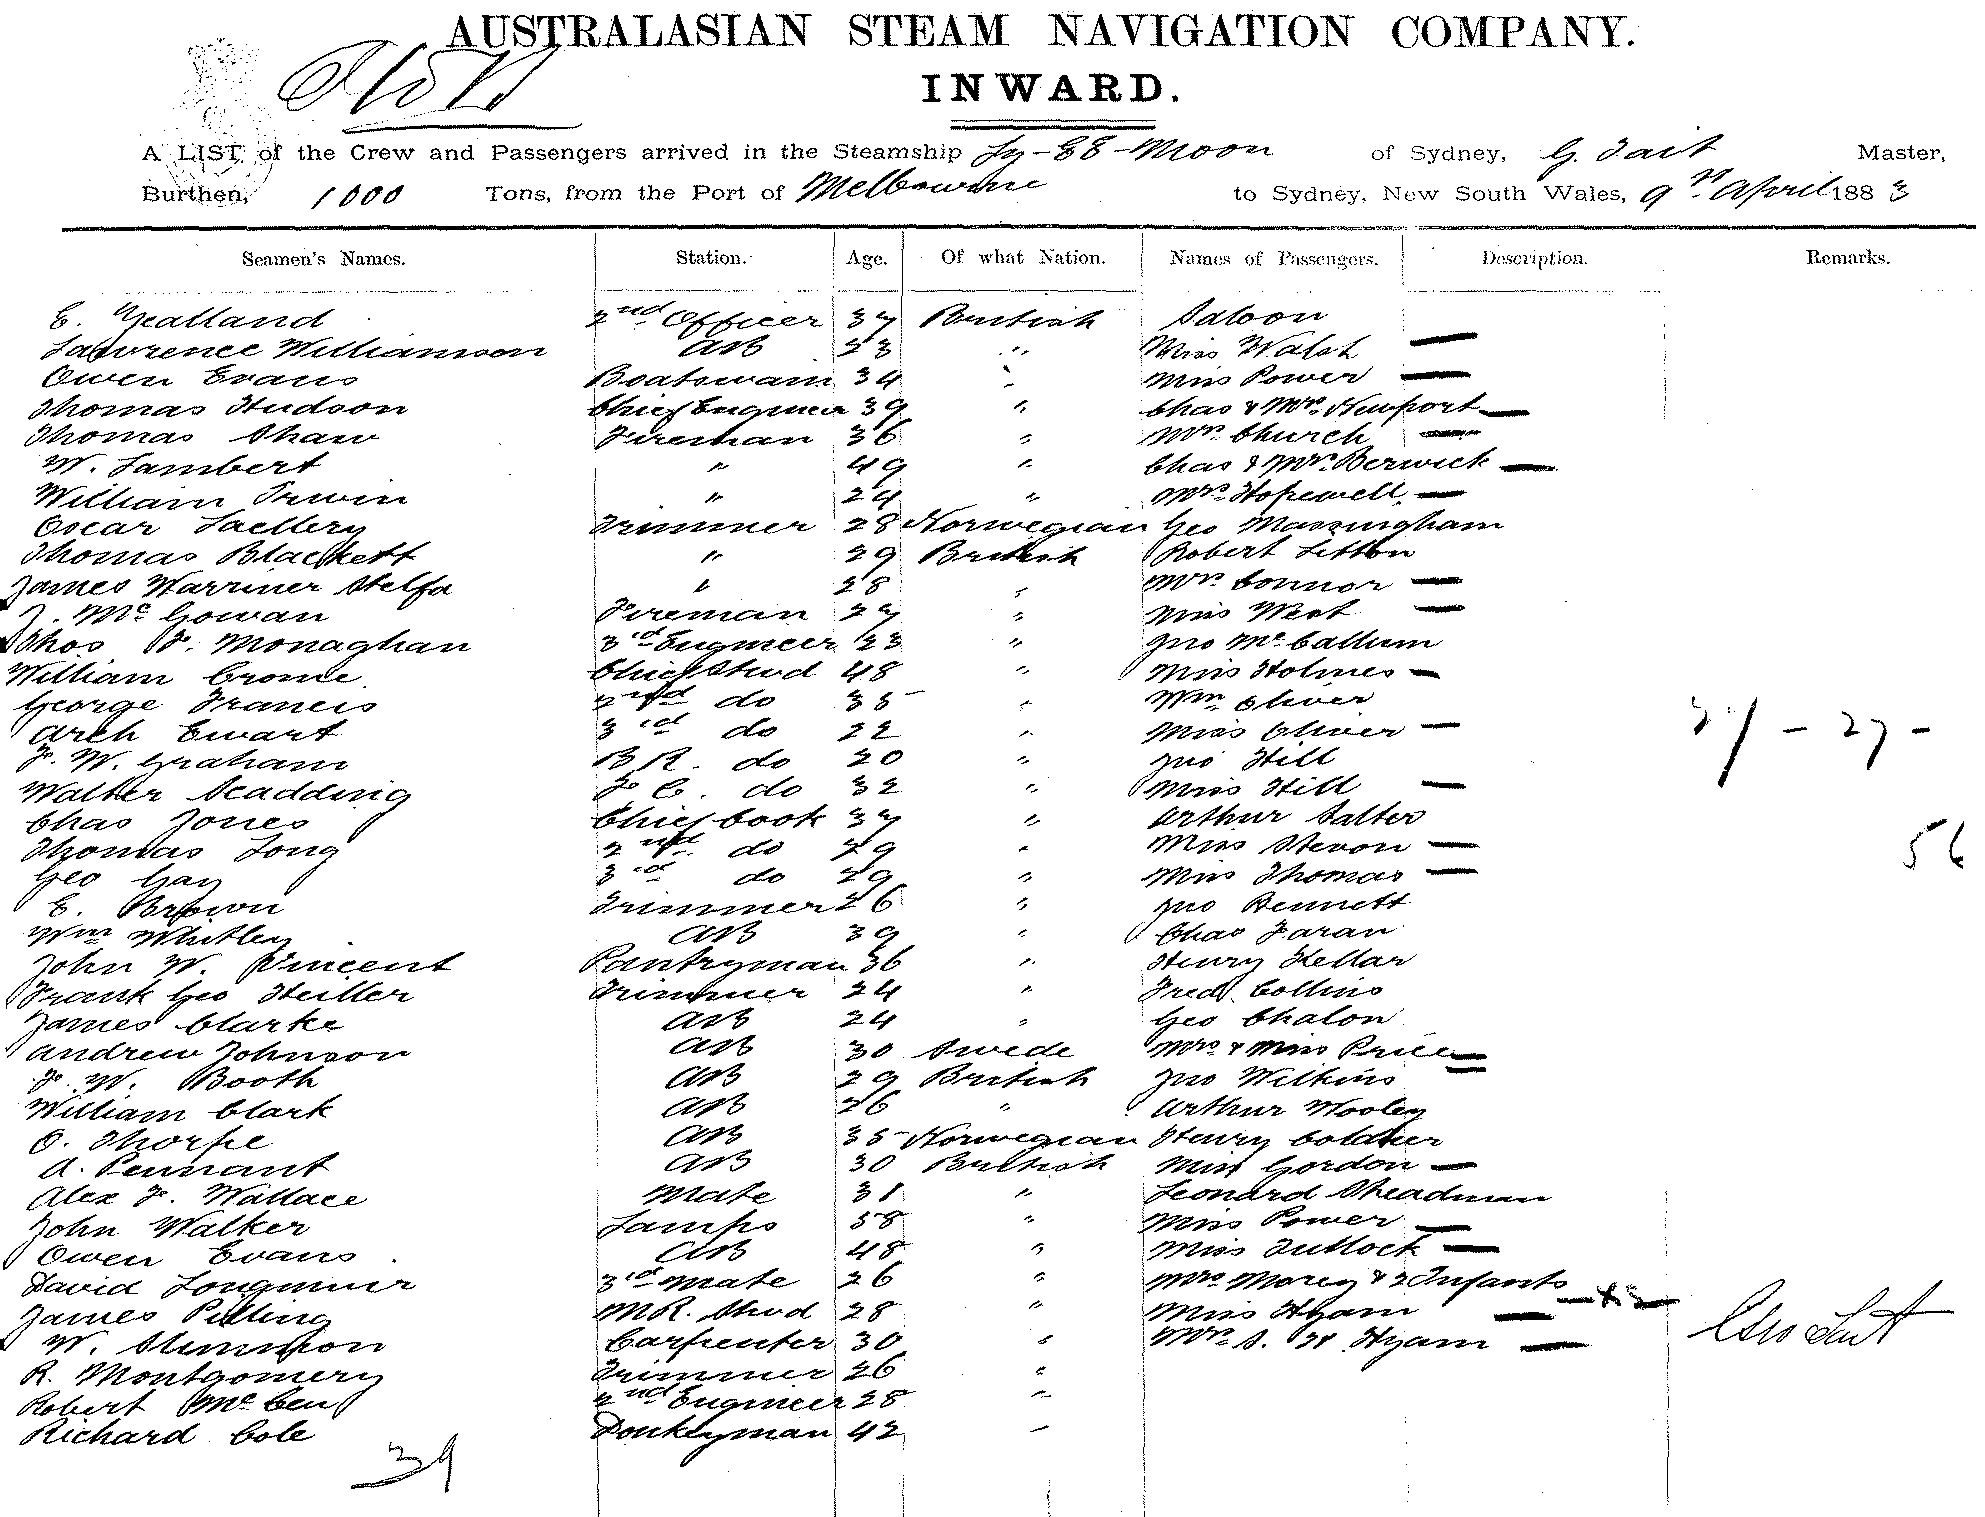 AUSTRALASIAN STEAM NAVIGATION COMPANY.
INWARD.
A LIST of the Crew and Passengers arrived in the Steamship Ly-EE-Moon of Sydney, G. Tait Master,
Burthen, 1000 Tons, from the Port of Melbourne to Sydney, New South Wales, 9th April 1883
Seamen's Names. Station. Age. Of what Nation. Names of Passengers. Description. Remarks.
E. Yealland 2nd Officer 37 British Saloon
Lawrence Williamson AB 23 " Miss Walsh —
Owen Evans Boatswain 34 " Miss Power —
Thomas Hudson Chief Engineer 39 " Chas & Mrs Newport —
Thomas Shaw Fireman 36 " Mrs Church —
W. Lambert " 49 " Chas & Mrs Berwick —
William Irwin " 24 " Mrs Hopewell —
Oscar Trimmer 28 Norwegian Geo Massingham
Thomas Blackett " 29 British Robert Litton
James Warriner Stelfa " 28 " Mrs Connor —
J. McGowan Fireman 27 " Miss West —
Thos F. Monaghan 3rd Engineer 23 " Jno McCallum
William Crome Chief Stwd 48 " Miss Holmes —
George Francis 2nd do 35 " Wm Oliver
Arch Ewart 3rd do 22 " Miss Oliver —
F. W. Graham B R. do 20 " Jno Hill
Walter Scadding F C. do 32 " Miss Hill —
Chas Jones Chief Cook 37 " Arthur Salter
Thomas Long 2nd do 29 " Miss Stevon —
Geo Gay 3rd do 29 " Miss Thomas —
E. Brown Trimmer 26 " Jno Bennett
Wm Whitley AB 39 " Chas Faran
John W. Vincent Pantryman 36 " Henry Hellar
Frank Geo Heiller Trimmer 24 " Fred Collins
James Clarke AB 24 " Geo Chalon
Andrew Johnson AB 30 Swede Mrs & Miss Price —
F. W. Booth AB 29 British Jno Wilkins
William Clark AB 26 " Arthur Wooley
O. Thorpe AB 35 Norwegian Henry
A. Pennant AB 30 British Miss Gordon —
Alex F. Wallace Mate 31 " Leonard Steadman
John Walker Lamps 58 " Miss Power —
Owen Evans AB 48 " Miss Tullock —
David Longmuir 3rd Mate 26 " Mrs Morey & 2 Infants
James Pilling M.R. Stwd 28 " Miss Hyam —
W. Carpenter 30 " Mrs S. H. Hyam —
R. Montgomery Trimmer 26 "
Robert 2nd Engineer 28 "
Richard Cole Donkeyman 42 "
39
27 -
56
Geo Tait